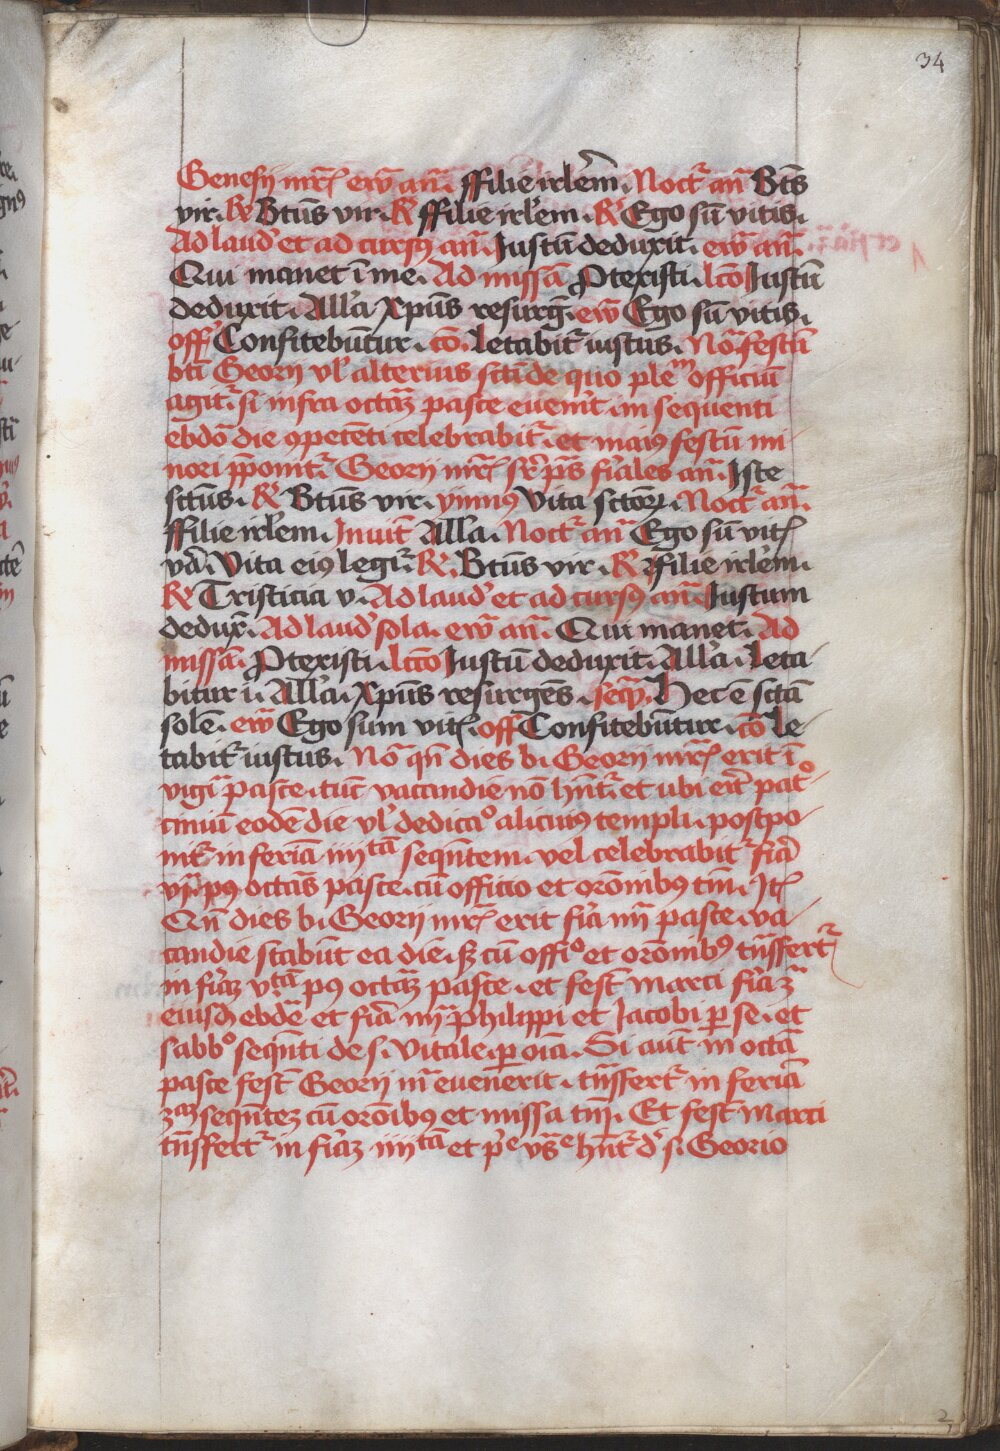 34
Genesij mr̄ꝭ ew̄ an̄. ffilie irl̄em. Noctꝰ an̄ Bt̄s
vir. ℞ Btūs vir. ℞ ffilie irl̄em. ℞ Ego sū vitis.
Ad laud̓ et ad cursꝰ an̄. Justū deduxit. ew̄ an̄.
Qui manet ī me. Ad missā Ꝓtexisti. lcc̄o Justū
deduxit. All̓a Xpūs resurḡ. ew̄ Ego sū vitis.
off̓ Confitebūtur. cō. letabit᷑ iustus. Nō. festū
bt̄i Georij vl̓ alterius sct̄i de quo plēᵐ officiū
agit᷑. si infra octaꝫ pasce euen̓it. in sequenti
ebdō die ꝯpetēti celebrabit᷑. et maiꝰ festū mi
nori p̄ponit᷑. Georij mr̄ꝭ sr̓ pōs fīales an̄. Iste
sct̄us. ℞ Btūs vir. ymnꝰ Vita sctōꝝ. Noctꝰ an̄.
ffilie irl̄em. Inuit̄ All̓a. Noctꝰ an̄ Ego sū vitꝭ
vā. Vita eiꝰ legit᷑. ℞. Btūs vir. ℞ ffilie irl̄em.
℞ Tristicia v̄. Ad laud̓ et ad cursꝰ an̄. Justum
dedux̄. Ad laud̓ sola. ew̄ an̄. Qui manet. Ad
missā. Ꝓtexisti. lcc̄o Justū deduxit. All̓a. Leta
bitur i. All̓a. Xpūs resurgēs. seqꝰ. Hec ē sctā
solē. ew̄ Ego sum vitꝭ. off̓ Confitebūtur. cō le
tabit᷑ iustus. Nō qn̄ dies b. Georij mr̄ꝭ erit ī
vig̓ia pasce. tūc vacandie nō hn̄t᷑. et ubi eēt pat᷑o
ciniū eodē die vl̓ dedicꝰo alicuiꝰ templi. postpo
nit᷑ in feriā iiijᵗᵃ seqn̄tem. vel celebrabit᷑ fīa
vj. pꝰ octās pasce. cū officio et orōnibꝰ tm̄. Itꝭ
Qn̄ dies b. Georij mr̄ꝭ erit fīa iiij pasce. va
candie stabūt ea die. sꝫ cū offīo et orōnibꝰ tn̄sfert᷑
in fīaꝫ vᵗᵃ pꝰ octaꝫ pasce. et fest̄ marci fīaꝫ 3ᵃ
eiusdꝫ ebdē et fīa iiij Philippi et Jacobi p̱ se. et
sabbᵒ seqn̄ti de s. Vitale. p̱ oīa. Si aūt in octā
pasce fest̄ Georij m̄ euenerit. tn̄sfert᷑ in feriā
3ᵃᵐ seqn̄teꝫ cū orōnibꝰ et missa tm̄. Et fest̄ marci
tn̄sfert᷑ in fīaꝫ iiijᵗᵃ et p̓e vs̄e hn̄t᷑ d̓ s. Georio